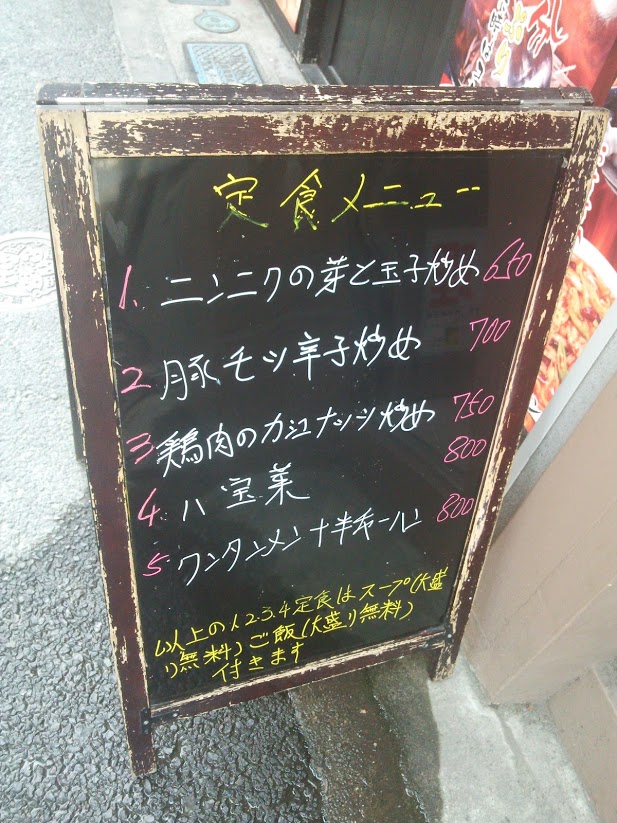 定食メニュー
1. ニンニクの芽と玉子炒め 650
2 豚モツ辛子炒め 700
3 鶏肉のカシューナッツ炒め 750
4 八宝菜 800
5 ワンタンメン+半チャーハン 800
以上の1.2.3.4定食はスープ(大盛
り無料)ご飯(大盛り無料)
付きます